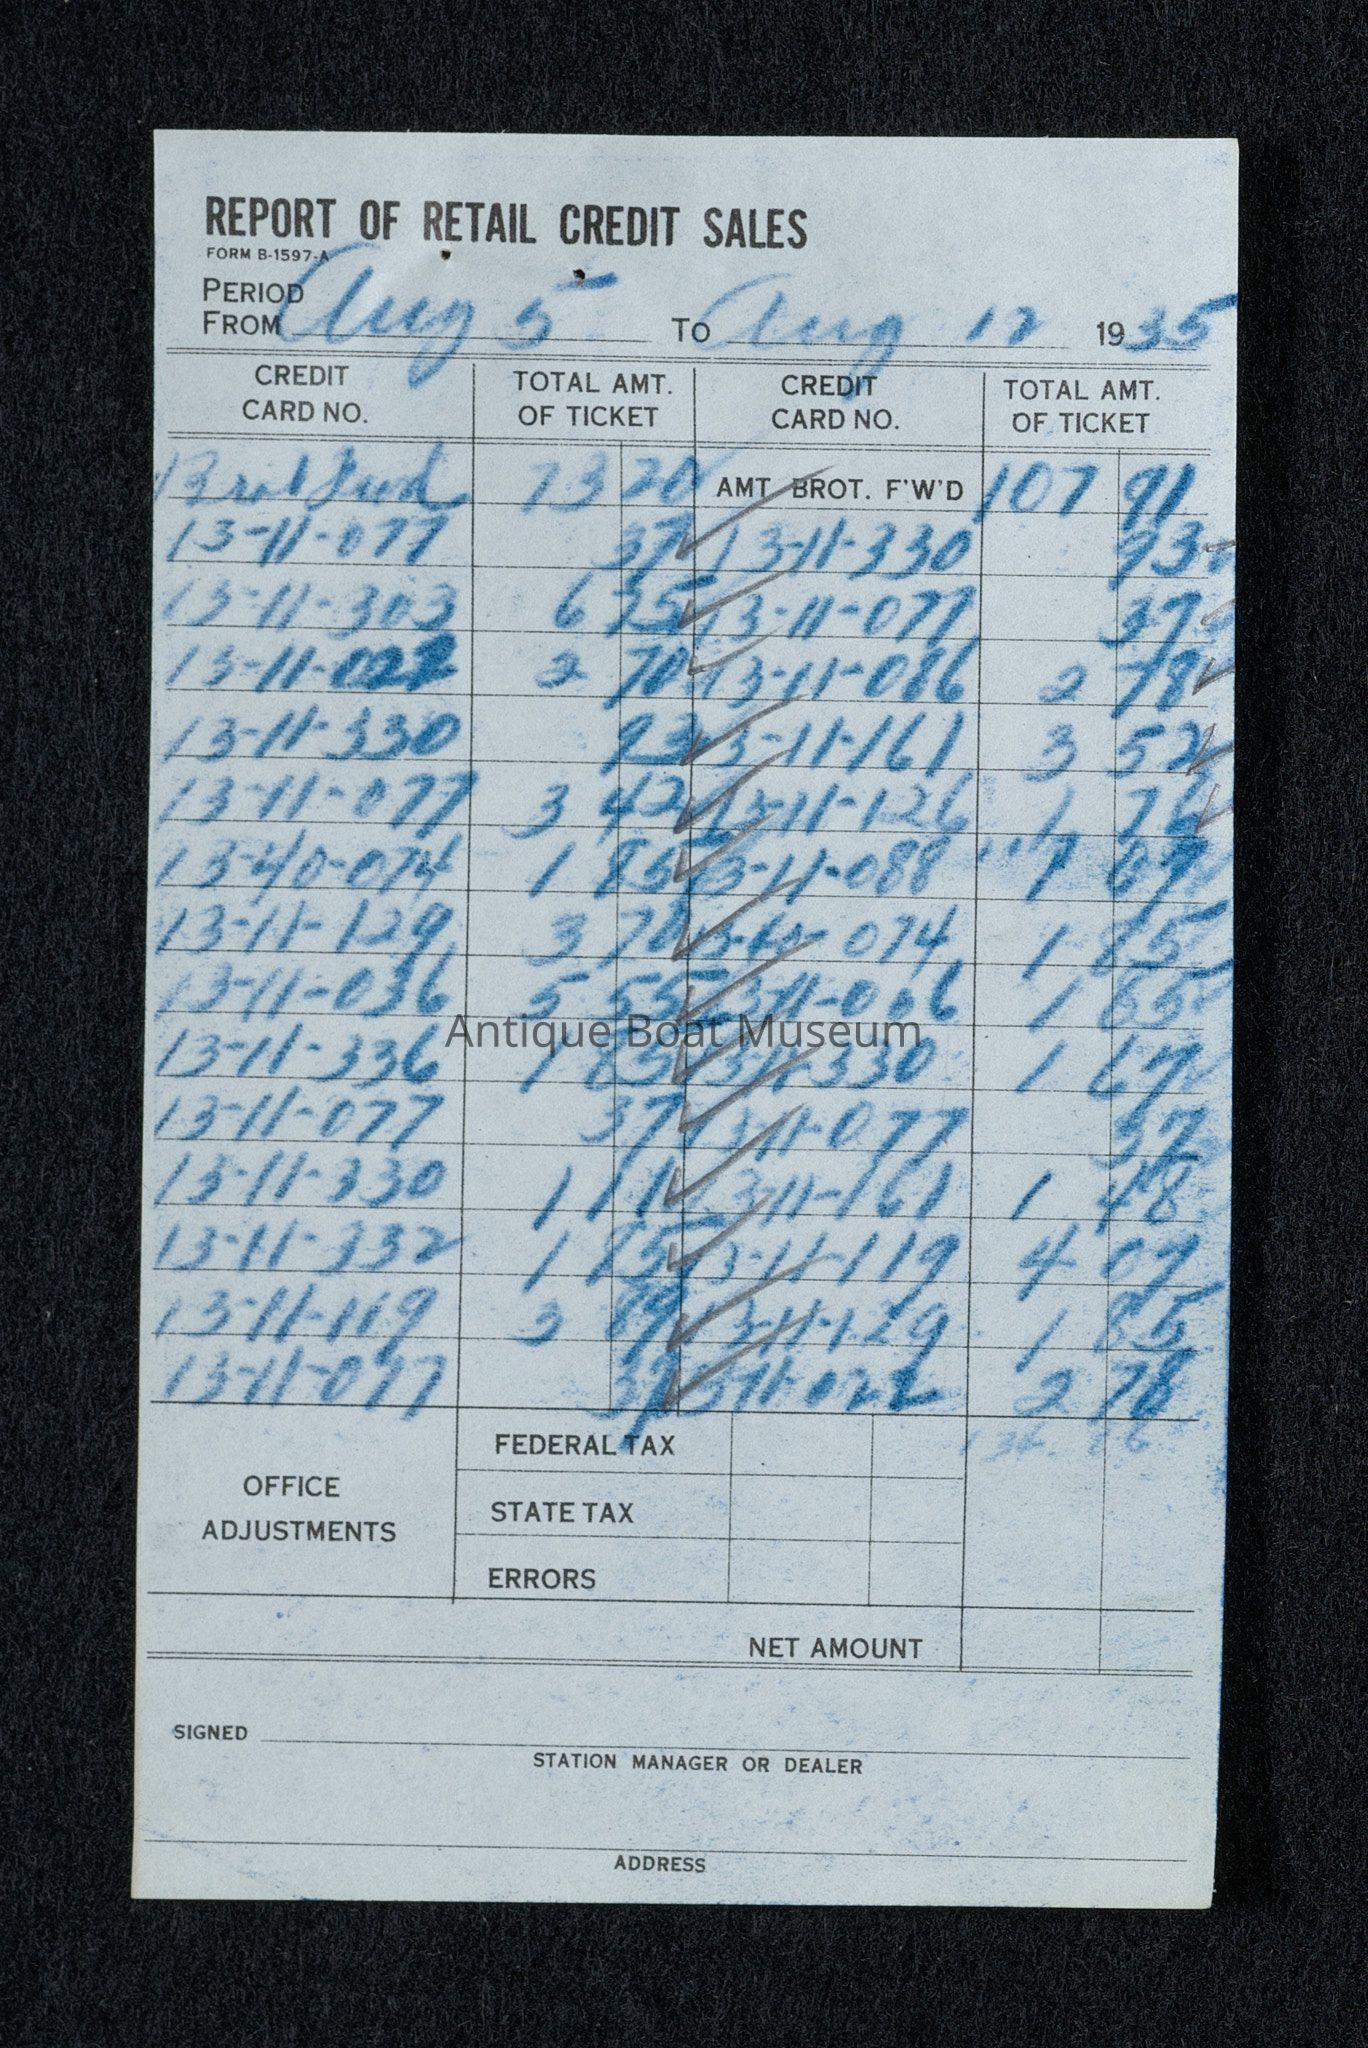 REPORT OF RETAIL CREDIT SALES
FORM B-1597-A
PERIOD
FROM Aug 5 TO Aug 12 1935
CREDIT CARD NO. TOTAL AMT. OF TICKET CREDIT CARD NO. TOTAL AMT. OF TICKET
Brot Fwd 73 20 AMT BROT. F'W'D 107 91
13-11-077 37 13-11-330 93
13-11-303 6 35 13-11-077 37
13-11-022 2 70 13-11-086 2 78
13-11-330 93 13-11-161 3 52
13-11-077 3 42 13-11-126 1 76
13-40-074 1 85 13-11-088 1 07
13-11-129 3 70 13-40-074 1 85
13-11-036 5 55 13-11-006 1 85
13-11-336 1 85 13-11-330 1 67
13-11-077 37 13-11-077 37
13-11-330 1 11 13-11-161 1 48
13-11-332 1 85 13-11-119 4 07
13-11-119 2 89 13-11-129 1 85
13-11-077 37 13-11-022 2 78
FEDERAL TAX
OFFICE
ADJUSTMENTS
STATE TAX
ERRORS
NET AMOUNT
SIGNED
STATION MANAGER OR DEALER
ADDRESS
Antique Boat Museum